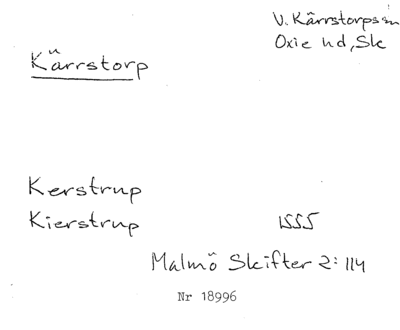 V. Kärrstorps sn
Oxie hd, Sk
Kärrstorp
Kerstrup
Kierstrup 1555
Malmö Skifter 2: 114
Nr 18996